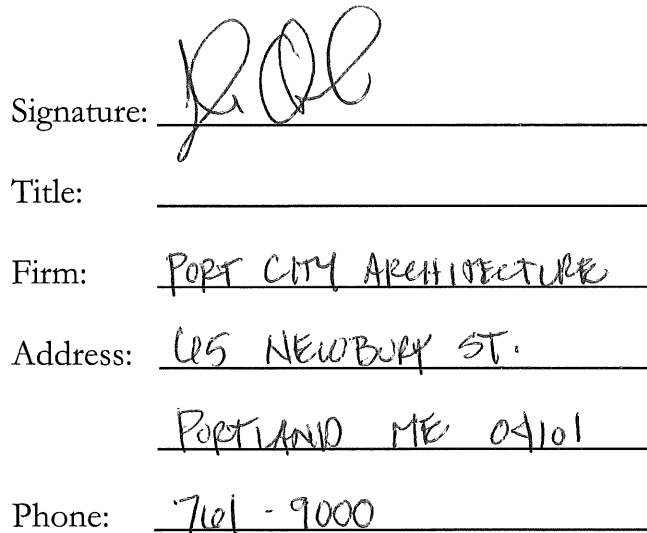 Signature:
Title:
Firm: PORT CITY ARCHITECTURE
Address: 65 NEWBURY ST.
PORTLAND ME 04101
Phone: 761-9000